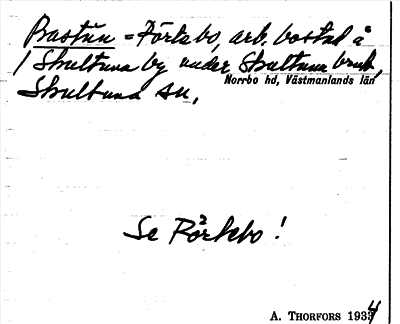 Bastun = Rörkbo, arb. bostad å
1 Skultuna by under Skultuna bruk,
Norrbo hd, Västmanlands län
Skultuna sn,
Se Rörkbo!
A. THORFORS 1934